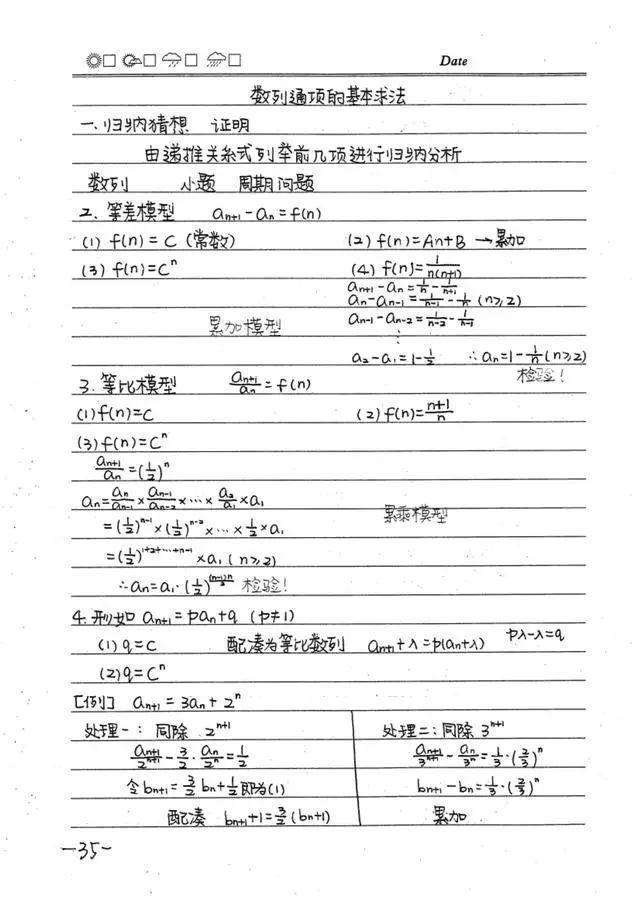 Date
数列通项的基本求法
一、归纳猜想 证明
由递推关系式列举前几项进行归纳分析
数列 小题 周期问题
2、等差模型 aₙ₊₁-aₙ=f(n)
(1) f(n)=C (常数) (2) f(n)=An+B →累加
(3) f(n)=Cⁿ (4) f(n)=1/n(n+1)
aₙ₊₁-aₙ=1/n-1/(n+1)
aₙ-aₙ₋₁=1/(n-1)-1/n (n≥2)
累加模型 aₙ₋₁-aₙ₋₂=1/(n-2)-1/(n-1)
⋮
a₂-a₁=1-1/2 ∴aₙ=1-1/n(n≥2)
检验!
3、等比模型 aₙ₊₁/aₙ=f(n)
(1) f(n)=C (2) f(n)=(n+1)/n
(3) f(n)=Cⁿ
aₙ₊₁/aₙ=(1/2)ⁿ
aₙ=aₙ/aₙ₋₁×aₙ₋₁/aₙ₋₂×…×a₂/a₁×a₁
累乘模型
=(1/2)ⁿ⁻¹×(1/2)ⁿ⁻²×…×1/2×a₁
=(1/2)^(1+2+…+n-1)×a₁ (n≥2)
∴aₙ=a₁·(1/2)^((n-1)n/2) 检验!
4.形如 aₙ₊₁=paₙ+q (p≠1)
(1) q=C 配凑为等比数列 aₙ₊₁+λ=p(aₙ+λ) pλ-λ=q
(2) q=Cⁿ
[例] aₙ₊₁=3aₙ+2ⁿ
处理一:同除 2ⁿ⁺¹
aₙ₊₁/2ⁿ⁺¹-3/2·aₙ/2ⁿ=1/2
令bₙ₊₁=3/2bₙ+1/2即为(1)
配凑 bₙ₊₁+1=3/2(bₙ+1)
处理二:同除 3ⁿ⁺¹
aₙ₊₁/3ⁿ⁺¹-aₙ/3ⁿ=1/3·(2/3)ⁿ
bₙ₊₁-bₙ=1/3·(2/3)ⁿ
累加
-35-